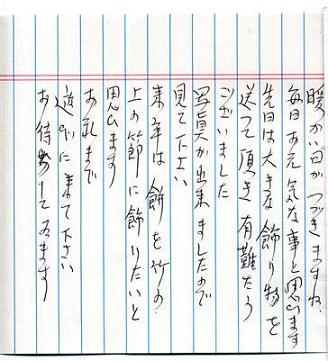 暖かい日がつづきますね
毎日お元気な事と思います
先日は大きな飾り物を
送って頂き有難たう
ございました
写真が出来ましたので
見て下さい
来年は餅を竹の
上の節に飾りたいと
思います
お礼まで
遊びに来て下さい
お待ちして居ります